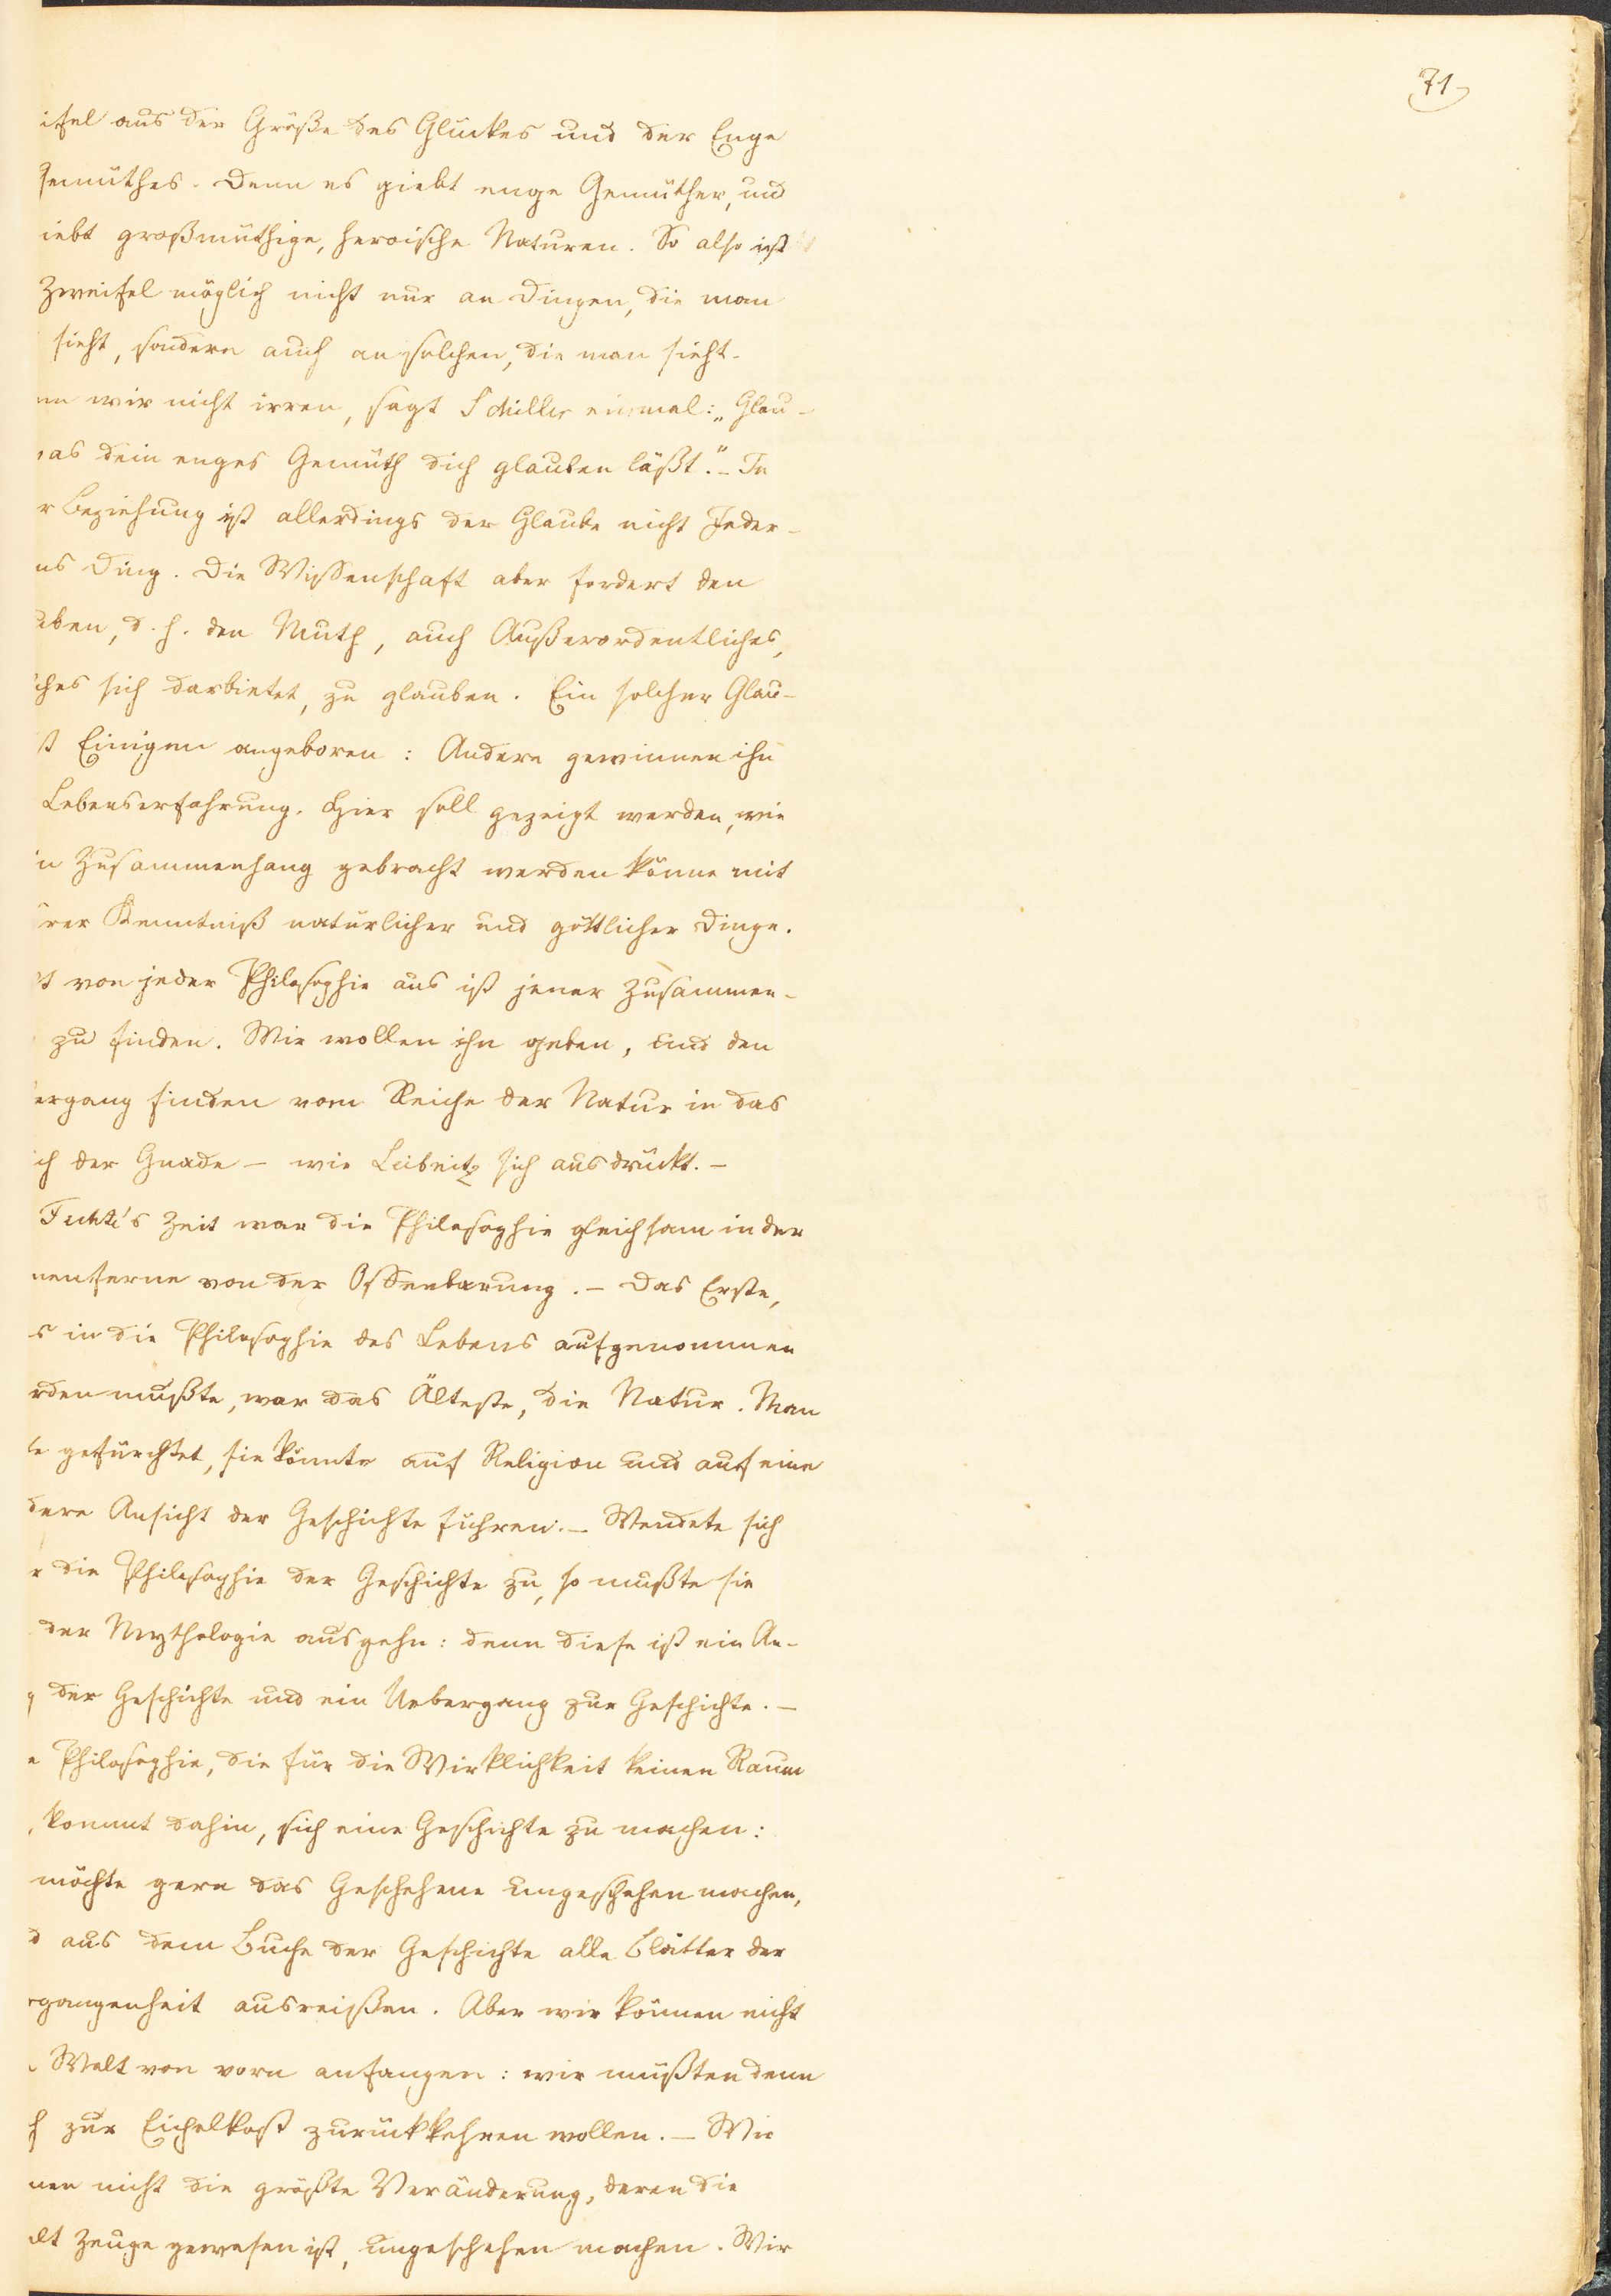 71
ifel aus der Größe des Glückes und der Enge
Gemüthes. Denn es giebt enge Gemüther, und
iebt großmüthige, heroische Naturen. So also ist
Zweifel möglich nicht nur an Dingen, die man
sieht, sondern auch an solchen, die man sieht.
nn wir nicht irren, sagt Schiller einmal: „Glau-
was dein enges Gemüth dich glauben läßt." – In
r Beziehung ist allerdings der Glaube nicht Jeder-
ns Ding. Die Wissenschaft aber fordert den
uben, d. h. den Muth, auch Außerordentliches,
ches sich darbietet, zu glauben. Ein solcher Glau-
st Einigen angeboren: Andere gewinnen ihn
Lebenserfahrung. Hier soll gezeigt werden, wie
in Zusammenhang gebracht werden könne mit
rer Kenntniß natürlicher und göttlicher Dinge.
t von jeder Philosophie aus ist jener Zusammen-
zu finden. Wir wollen ihn geben, und den
ergang finden vom Reiche der Natur in das
ich der Gnade – wie Leibnitz sich ausdrückt. –
Fichte's Zeit war die Philosophie gleichsam in der
nenferne von der Offenbarung. – Das Erste,
s in die Philosophie des Lebens aufgenommen
rden mußte, war das Älteste, die Natur. Man
te gefürchtet, sie könnte auf Religion und auf eine
dere Ansicht der Geschichte führen. – Wendete sich
r die Philosophie der Geschichte zu, so mußte sie
der Mythologie ausgehn: denn diese ist ein An-
g der Geschichte und ein Uebergang zur Geschichte. –
e Philosophie, die für die Wirklichkeit keinen Raum
, kommt dahin, sich eine Geschichte zu machen:
möchte gern das Geschehene ungeschehen machen,
d aus dem Buche der Geschichte alle Blätter der
rgangenheit ausreißen. Aber wir können nicht
e Welt von vorn anfangen: wir müßten denn
h zur Eichelkost zurückkehren wollen. – Wir
nen nicht die größte Veränderung, deren die
elt Zeuge gewesen ist, ungeschehen machen. Wir